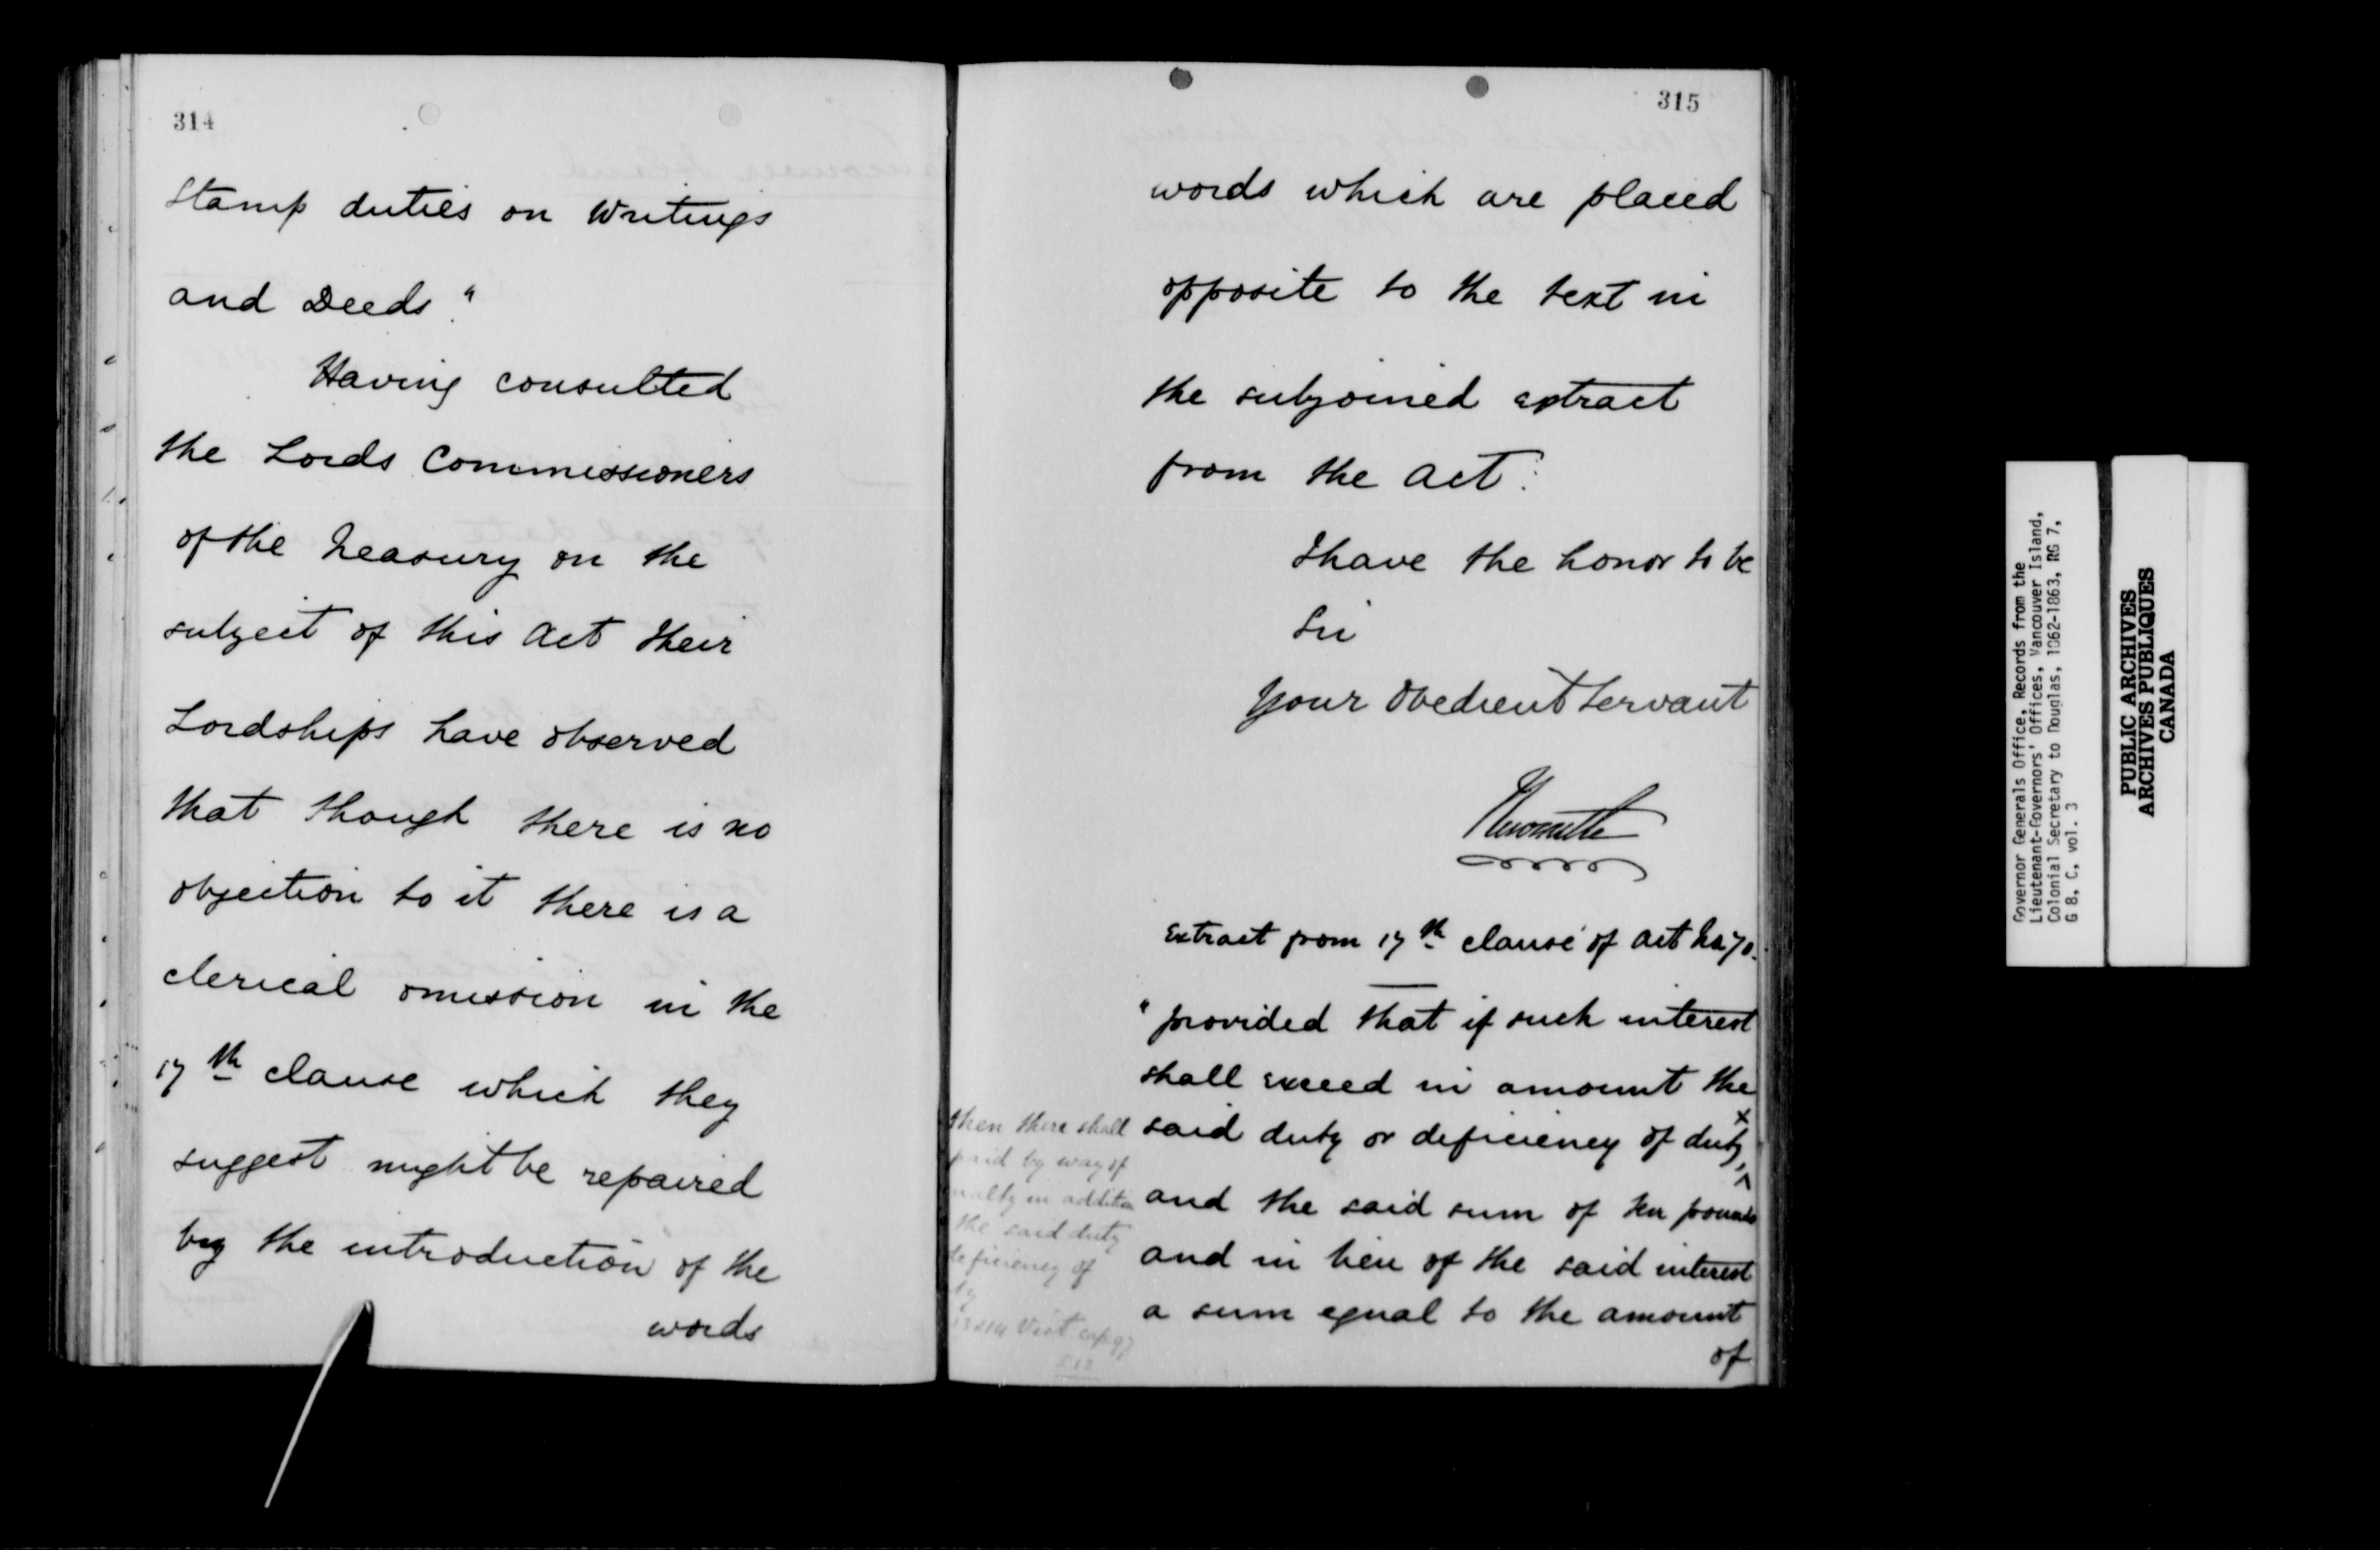 314
Stamp duties on Writings
and Deeds"
Having consulted
the Lords Commissioners
of the Treasury on the
subject of this Act their
Lordships have observed
that though there is no
objection to it there is a
clerical omission in the
17th clause which they
suggest might be repaired
by the introduction of the
words
315
words which are placed
opposite to the text in
the subjoined extract
from the Act:
I have the honor to be
Sir
Your Obedient Servant
Newcastle
Extract from 17th clause of Act No 70.
"provided that if such interest
shall exceed in amount the
said duty or deficiency of duty, x
^
and the said sum of ten pounds
and in lieu of the said interest
a sum equal to the amount
of
then there shall
paid by way of
in addition
the said duty
deficiency of
Vict cap 97
S.12
Governor Generals Office, Records from the
Lieutenant-Governors' Offices, Vancouver Island,
Colonial Secretary to Douglas, 1862-1863, RG 7,
G 8, C, vol. 3
PUBLIC ARCHIVES
ARCHIVES PUBLIQUES
CANADA